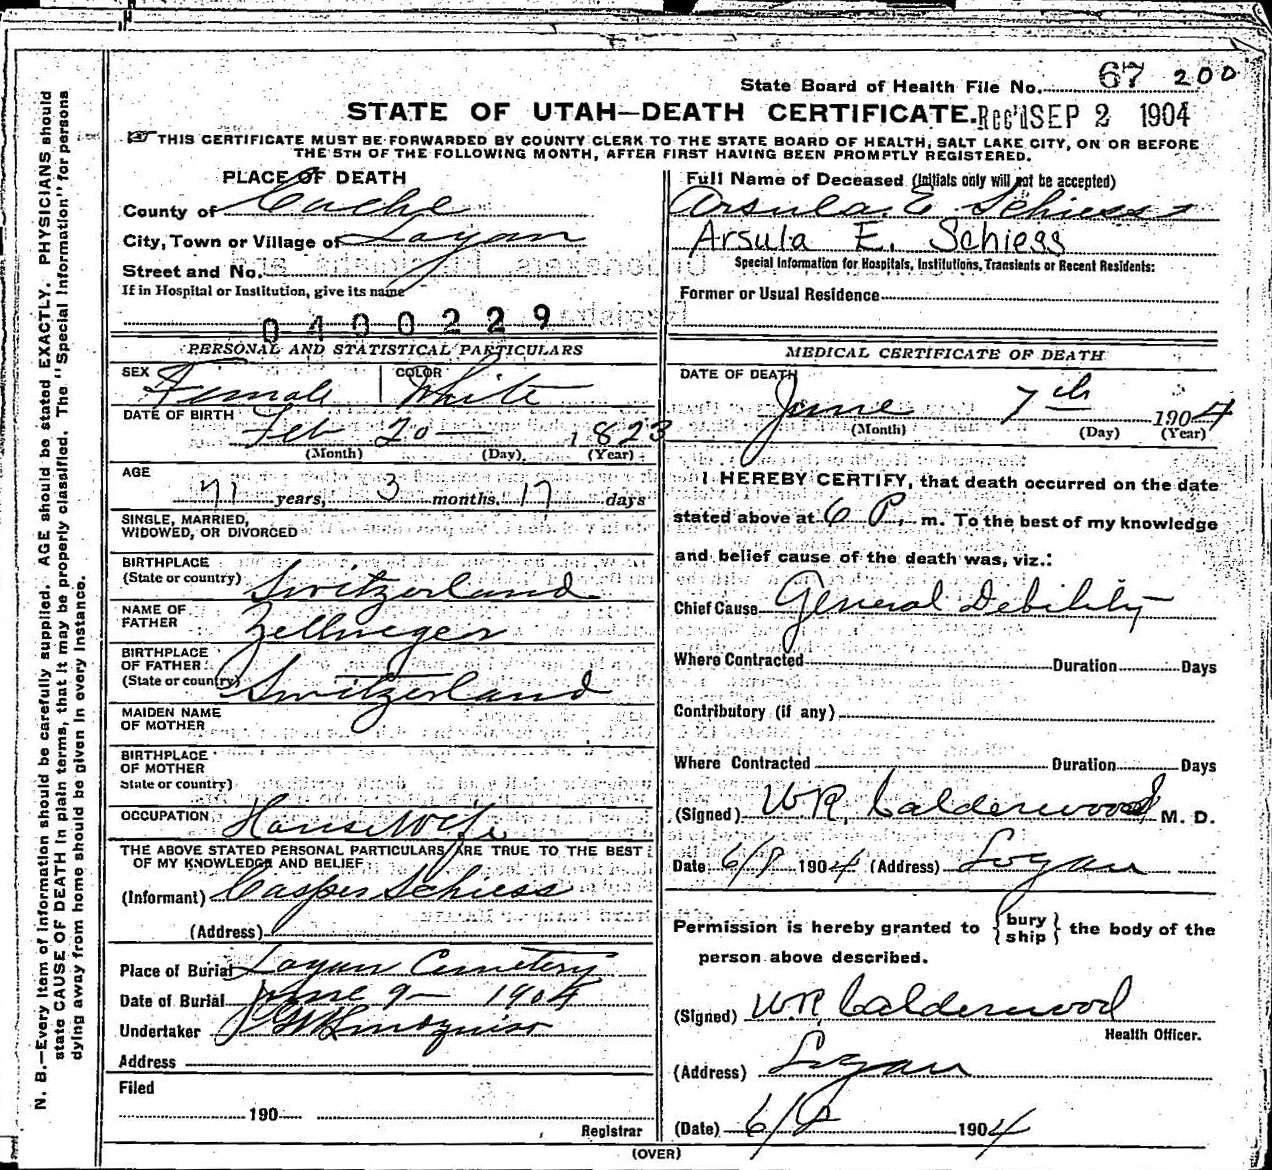 State Board of Health File No. 67 200
STATE OF UTAH—DEATH CERTIFICATE. Rec'd SEP 2 1904
THIS CERTIFICATE MUST BE FORWARDED BY COUNTY CLERK TO THE STATE BOARD OF HEALTH, SALT LAKE CITY, ON OR BEFORE
THE 5TH OF THE FOLLOWING MONTH, AFTER FIRST HAVING BEEN PROMPTLY REGISTERED.
PLACE OF DEATH
County of Cache
City, Town or Village of Logan
Street and No.
If in Hospital or Institution, give its name
0400229
PERSONAL AND STATISTICAL PARTICULARS
SEX Female COLOR White
DATE OF BIRTH
Feb 20 — 1823
(Month) (Day) (Year)
AGE
71 years, 3 months, 17 days
SINGLE, MARRIED,
WIDOWED, OR DIVORCED
BIRTHPLACE
(State or country) Switzerland
NAME OF
FATHER Zellweger
BIRTHPLACE
OF FATHER
(State or country) Switzerland
MAIDEN NAME
OF MOTHER
BIRTHPLACE
OF MOTHER
State or country)
OCCUPATION House Wife
THE ABOVE STATED PERSONAL PARTICULARS ARE TRUE TO THE BEST
OF MY KNOWLEDGE AND BELIEF
(Informant) Casper Schiess
(Address)
Place of Burial Logan Cemetery
Date of Burial June 9 — 1904
Undertaker
Address
Filed
190
Registrar
Full Name of Deceased (Initials only will not be accepted)
Arsula E Schiess
Arsula E. Schiess
Special Information for Hospitals, Institutions, Transients or Recent Residents:
Former or Usual Residence
MEDICAL CERTIFICATE OF DEATH
DATE OF DEATH
June 7th 1904
(Month) (Day) (Year)
I HEREBY CERTIFY, that death occurred on the date
stated above at 6 P. m. To the best of my knowledge
and belief cause of the death was, viz.:
Chief Cause General Debility
Where Contracted Duration Days
Contributory (if any)
Where Contracted Duration Days
(Signed) W.R. Calderwood M. D.
Date 6/8 1904 (Address) Logan
Permission is hereby granted to {bury
ship} the body of the
person above described.
(Signed) W.R. Calderwood
Health Officer.
(Address) Logan
(Date) 6/8 1904
(OVER)
N. B.—Every item of information should be carefully supplied. AGE should be stated EXACTLY. PHYSICIANS should
state CAUSE OF DEATH in plain terms, that it may be properly classified. The "Special Information" for persons
dying away from home should be given in every instance.